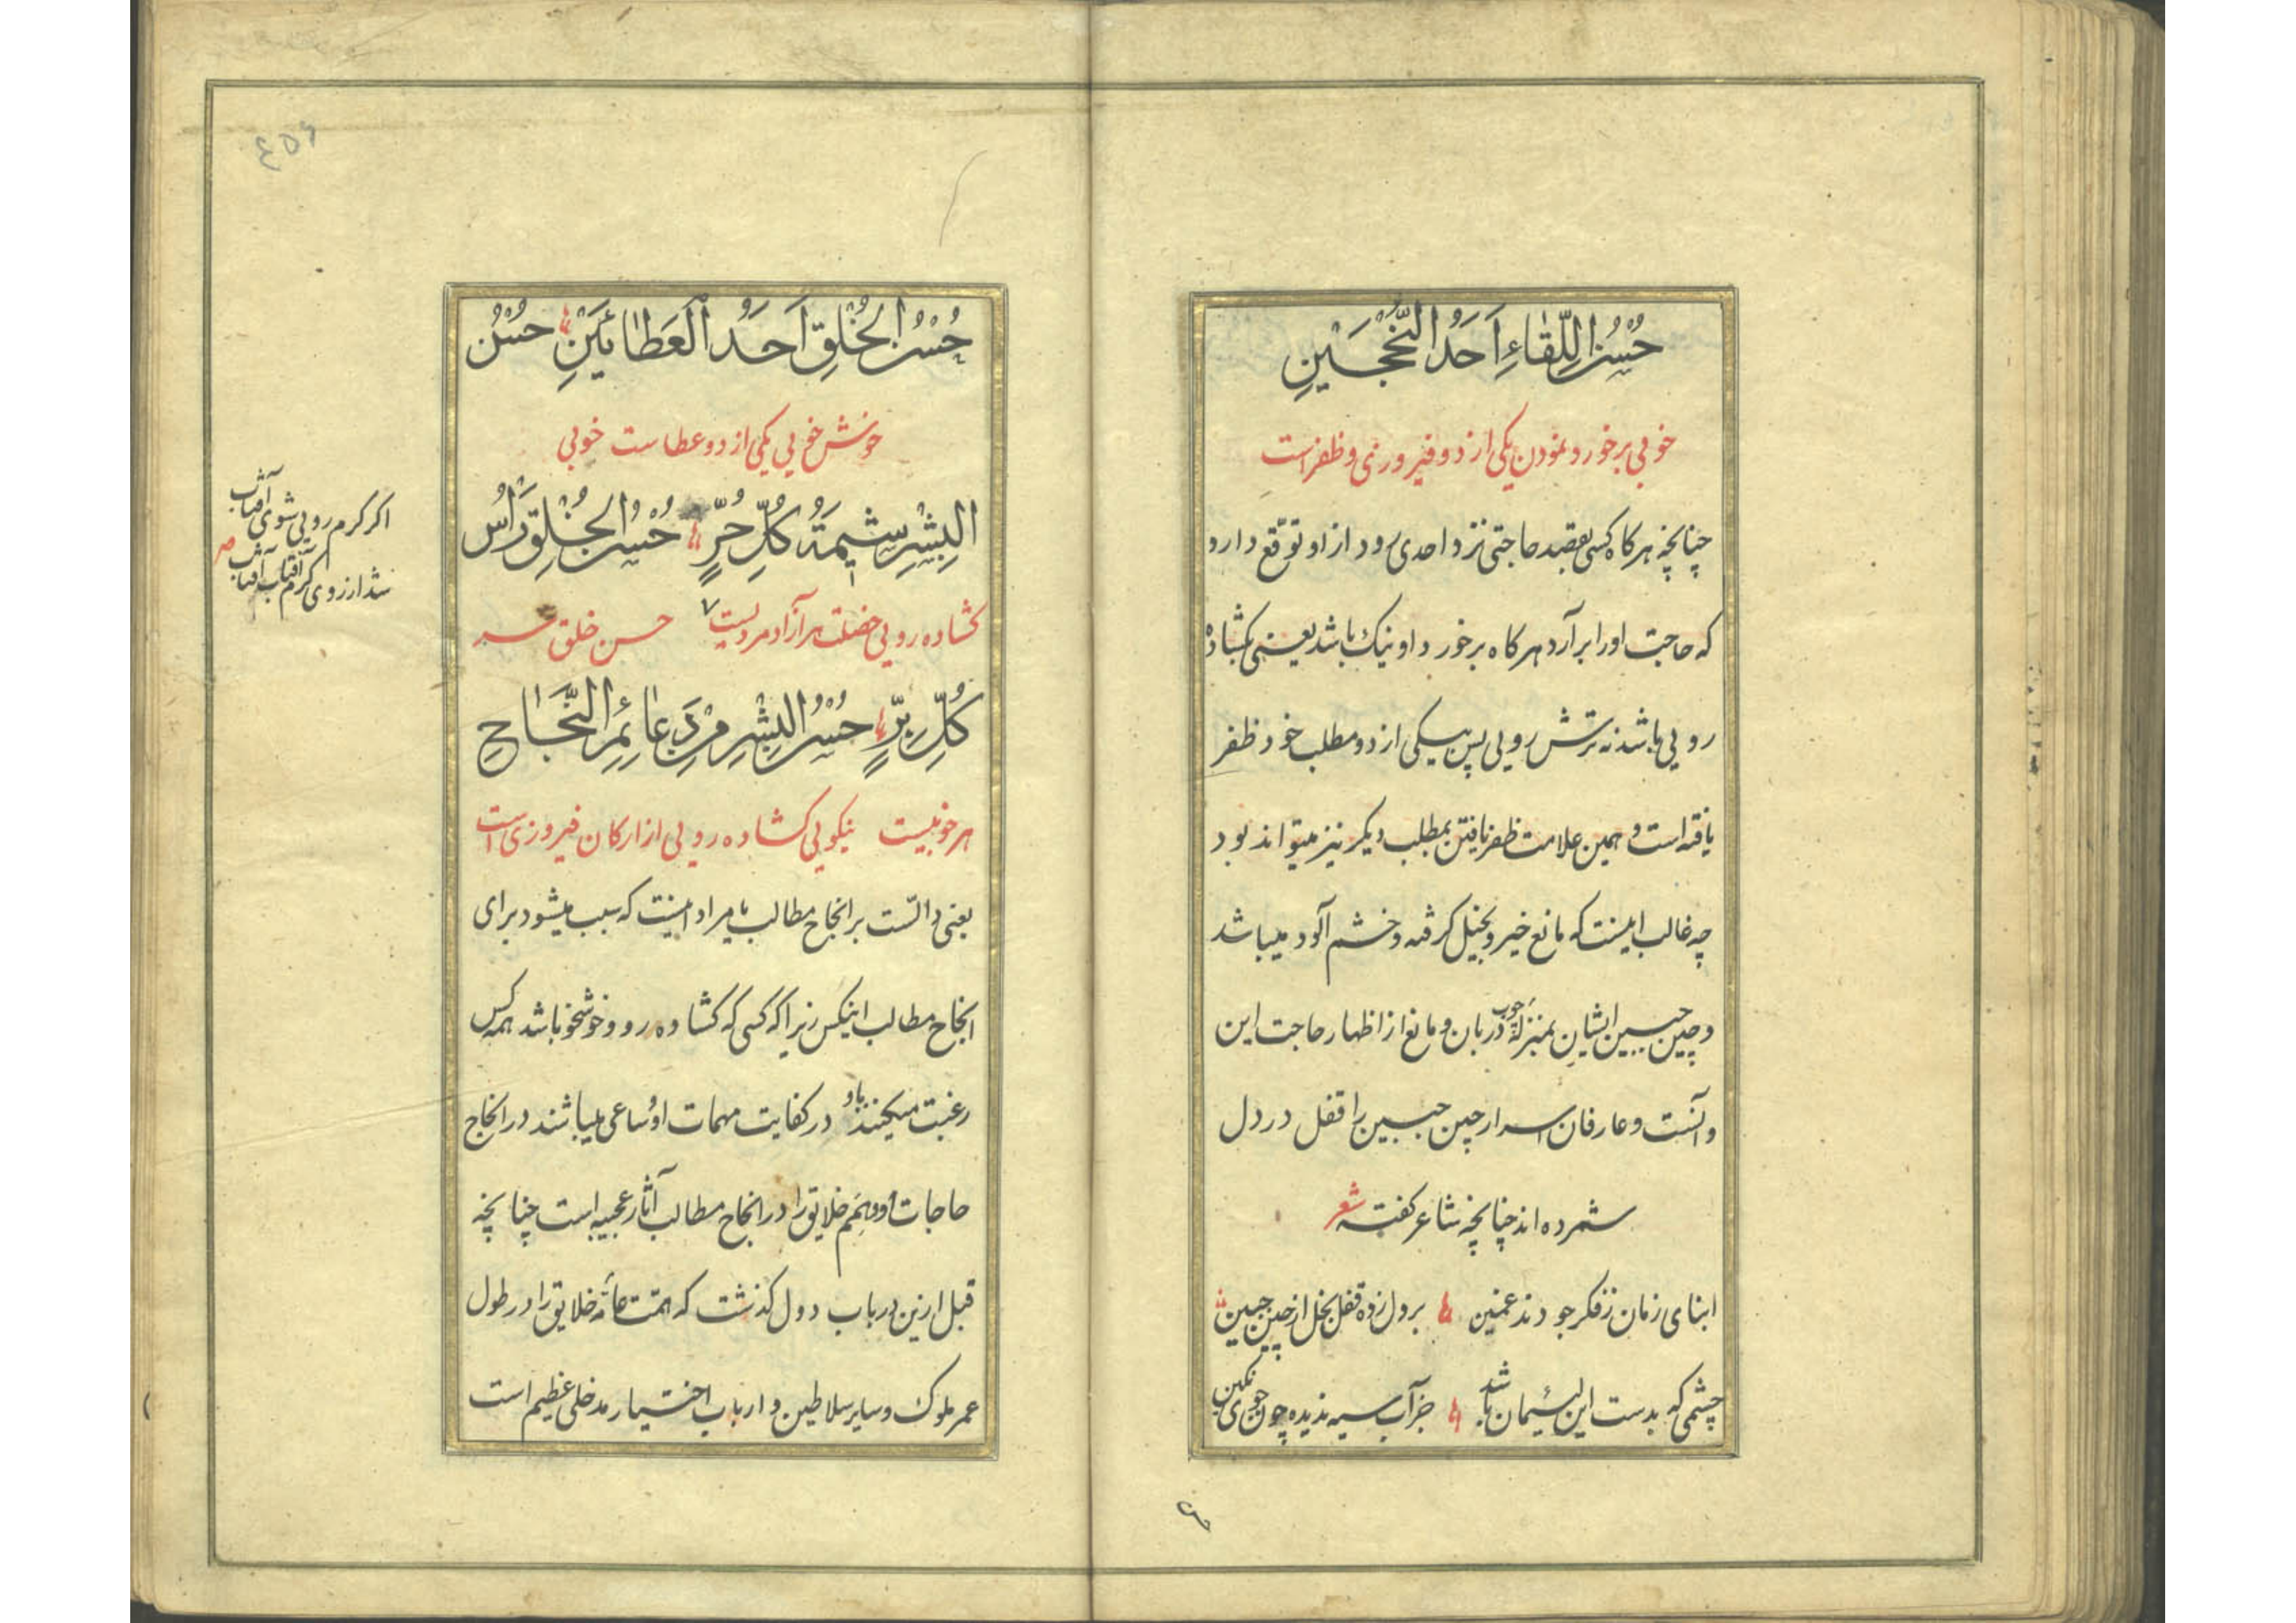 حُسْنُ اللِّقٰاءِ اَحَدُ النُّجْحَيْنِ
خوبی برخورد نمودن یکی از دو فیروزی و ظفر است
چنانچه هرکاه کسی بقصد حاجتی نزد احدی رود از او توقّع دارد
که حاجت او را برآرد هرکاه برخورد او نیک باشد یعنی بکشاده
رویی باشد نه ترش رویی پس بیکی از دو مطلب خود ظفر
یافته است و همین علامت ظفر یافتن بمطلب دیکر نیز میتواند بود
چه غالب اینست که مانع خیر و بخیل کرفته و خشم آلود میباشد
و چین جبین ایشان بمنزلهٔ چوب دربان و مانع از اظهار حاجت این
و آنست و عارفان اسرار چین جبین را قفل در دل
شمرده اند چنانچه شاعر کفته شعر
ابنای زمان ز فکر جو دند غمین بر دل زده قفل بخل از چین جبین
چشمی که بدست این لئیمان باشد جز آب سیه ندیده چون جوی نکین
حُسْنُ الْخُلْقِ اَحَدُ الْعَطٰائَيْنِ حُسْنُ
خوش خویی یکی از دو عطاست خوبی
الْبِشْرِ شيمَةُ كُلِّ حُرٍّ حُسْنُ الْخُلْقِ رَأْسُ
کشاده رویی خصلت هر آزاد مردیست حسن خلق سر
كُلِّ بِرٍّ حُسْنُ الْبِشْرِ مِنْ دَعٰائِمِ النَّجٰاحِ
هر خوبیست نیکویی کشاده رویی از ارکان فیروزی است
یعنی دالّست بر انجاح مطالب یا مراد اینست که سبب میشود برای
انجاح مطالب اینکس زیرا که کسی که کشاده رو و خوشخو باشد همه کس
رغبت میکنند باو در کفایت مهمات او و ساعی میباشند در انجاح
حاجات او و همم خلایق را در انجاح مطالب آثار عجیبه است چنانچه
قبل ازین در باب دول کذشت که همّت عامّه خلایق را در طول
عمر ملوک و سایر سلاطین و ارباب اختیار مدخلی عظیم است
اکر کرم رویی شوی آفتاب
شد از روی کرم آفتاب آفتاب